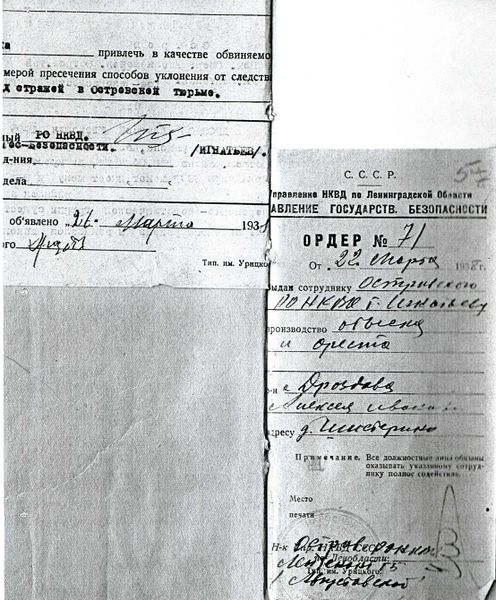 ка
привлечь в качестве обвиняемо
мерой пресечения способов уклонения от следств
д стражей в Островской Тюрьме.
ный РО НКВД.
Гос-Безопасности. /ИГНАТЬЕВ/.
д-ния
дела
объявлено „26" марта 193
ого
Тип. им. Урицко
57
С. С. С. Р.
Управление НКВД по Ленинградской Области
АВЛЕНИЕ ГОСУДАРСТВ. БЕЗОПАСНОСТИ
ОРДЕР № 71
От „22" марта 1938 г.
Выдан сотруднику Островского
РО НКВД т. Игнатьеву
производство обыска
и ареста
р-н с Дроздова
Алексея Ивано
адресу д. Шистерино
Примечание. Все должностные лица обязаны
оказывать указанному сотруд-
нику полное содействие.
Место
печати
Н-к НКВД
по Ленобласти:
Лейтенант
Тип. им. Урицкого.